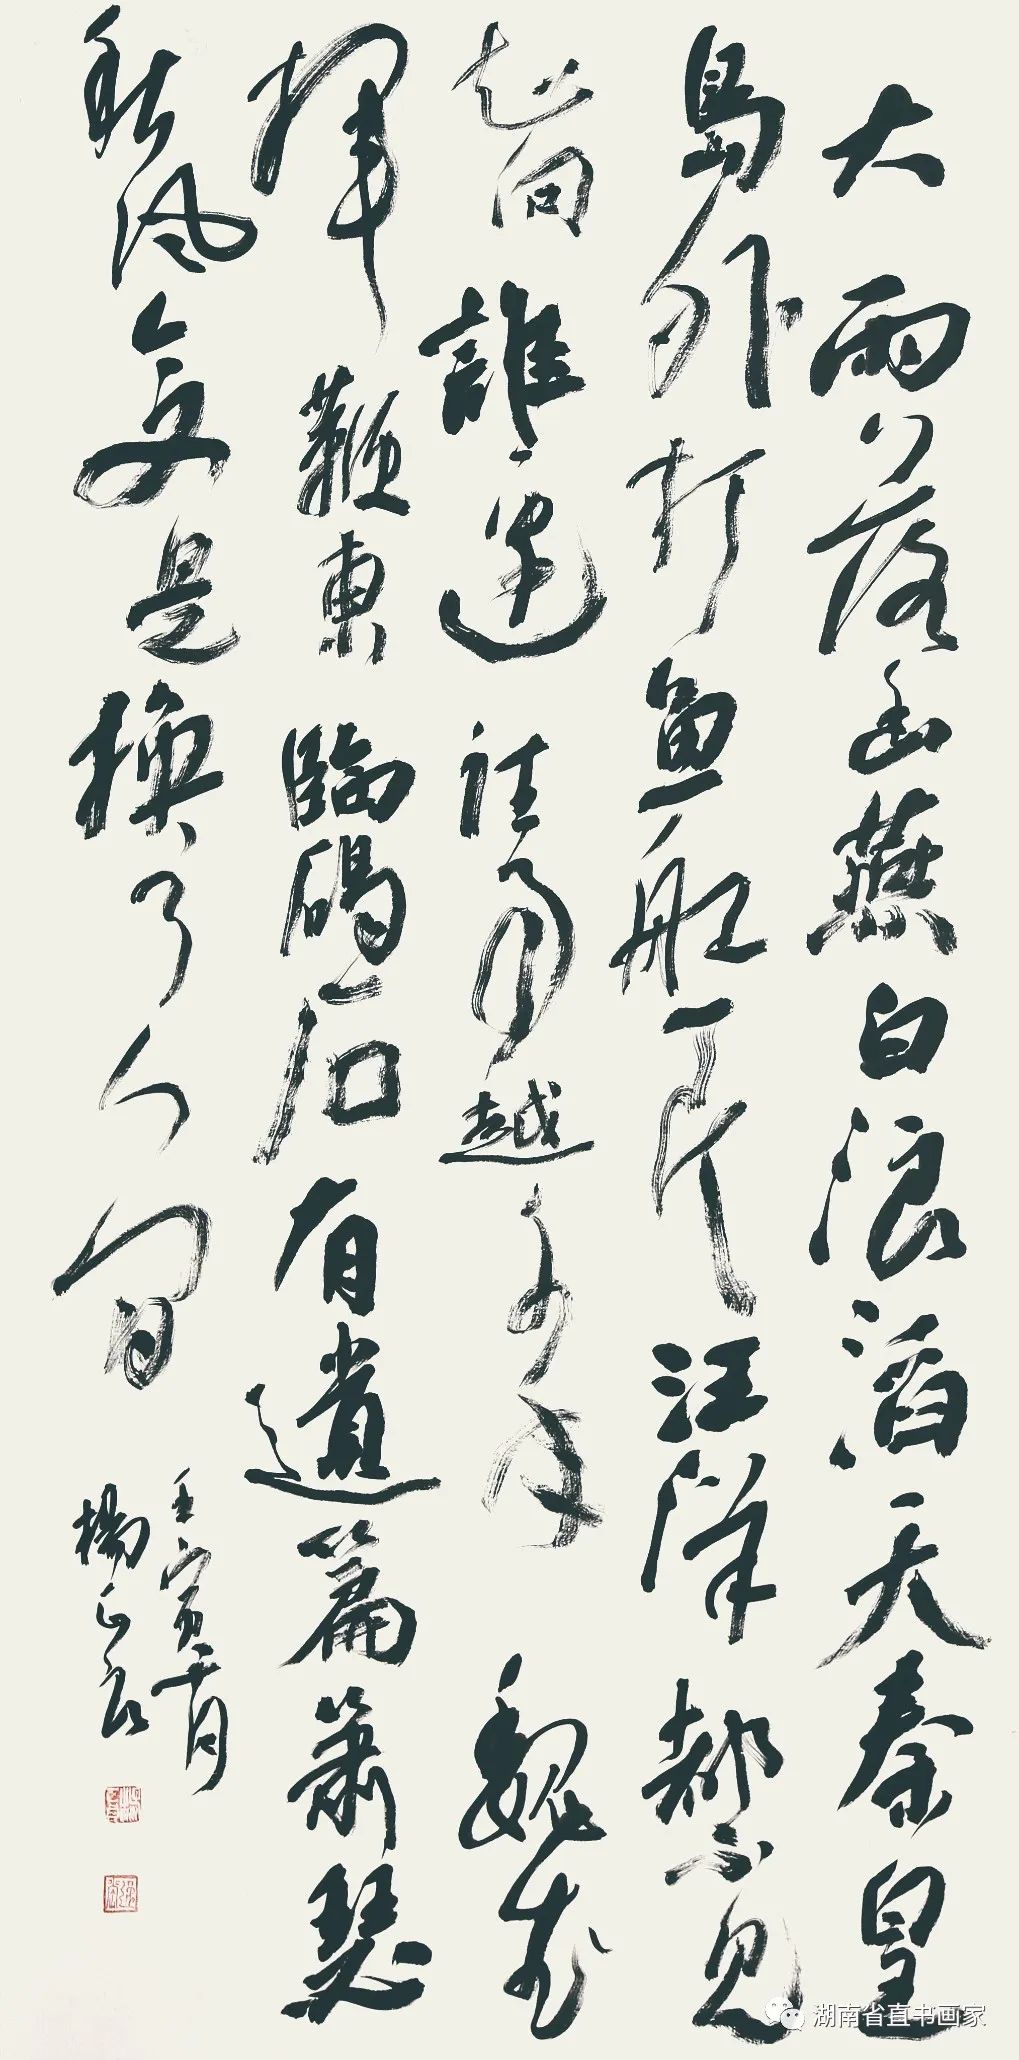 大雨落幽燕白浪滔天秦皇
島外打魚船一片汪洋都不見
知向誰邊往事越千年魏武
揮鞭東臨碣石有遺篇蕭瑟
秋風今又是換了人間
壬寅
楊正良
湖南省直书画家